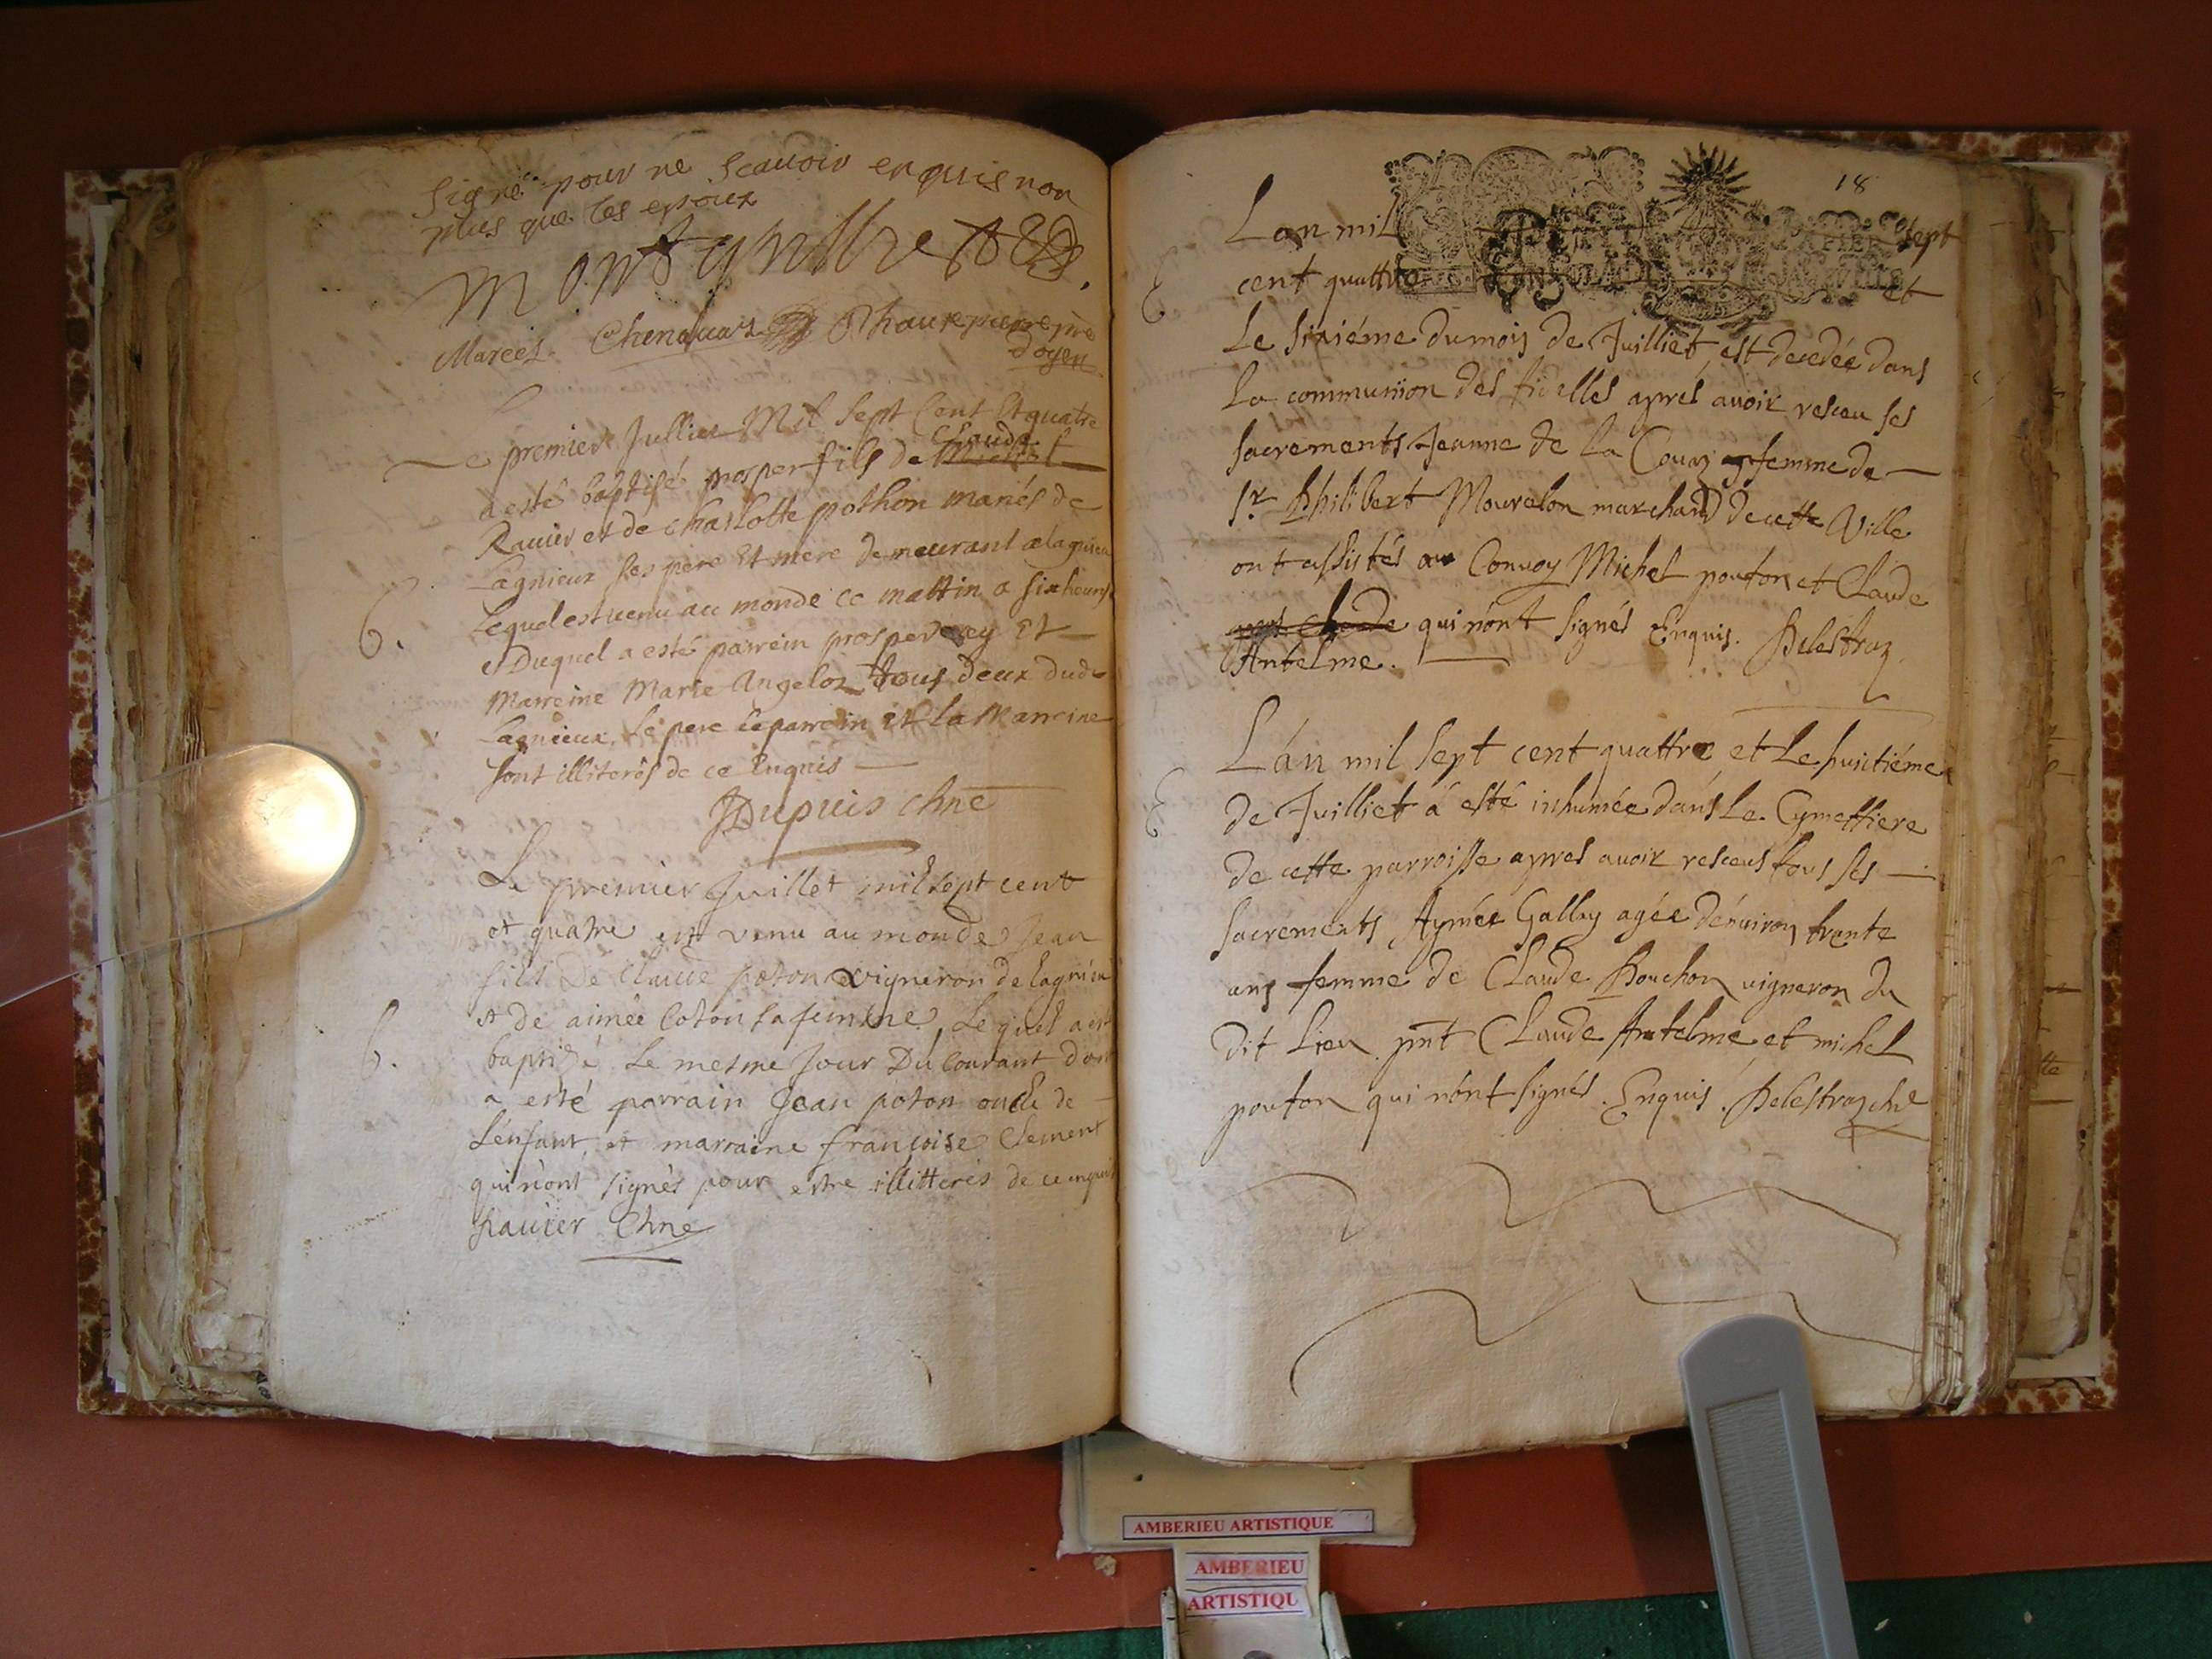 signé pour ne scauoir enquis non
plus que les epoux
Marcel Chenauaz phautepierre pre
doyen
Le premier Jullier Mil Sept Cent Et quatre
Claude
a esté baptisé prosper fils de Michel
Rauier et de charlotte pothon mariés de
Lagnieux ses père Et mère demeurant a lagnieu
Lequel est venu au monde ce mattin a six heures
et Duquel a esté parrein prosper rey Et
Marreine Marie Angeloz tous deux dud.
Lagnieux, Le pere Le parrein Et la Marreine
sont illiterés de ce Enquis
JDupuis Chne
6.
Le premier Juillet mil sept cent
et quatre est venu au monde Jean
fils de Claude poton vigneron de lagnieu
et de aimée Coton sa femme, Lequel a esté
baptizé Le mesme Jour Du Courant dont
a esté parrain Jean poton oncle de
L'enfant, et marraine françoise Clement
qui n'ont signés pour estre illitterés de ce enquis
Rauier Chne
6.
18
Lan mil sept
cent quattre et
Le sixiéme du mois de Juilliet, est decedée dans
La communion des fidelles aprés auoir resceu ses
sacrements Jeanne de La Cour femme de
Sr. Philibert Mourelon marchand de cette Ville
ont assistés au Conuoy Michel pouton et Claude
qui n'ont signés Enquis. Delestraz
Antelme.
L'án mil sept cent quattre et Le huictiéme
de Juilliet á esté inhumée dans Le Cymettiere
de cette parroisse apres auoir resceus tous ses
sacrements Aymée Gallay agée d'enuiron trente
ans femme de Claude Bouchon vigneron du
dit Lieu pnt Claude Antelme et michel
pouton qui n'ont signés. Enquis. Delestraz chne
AMBERIEU ARTISTIQUE
AMBERIEU
ARTISTIQU